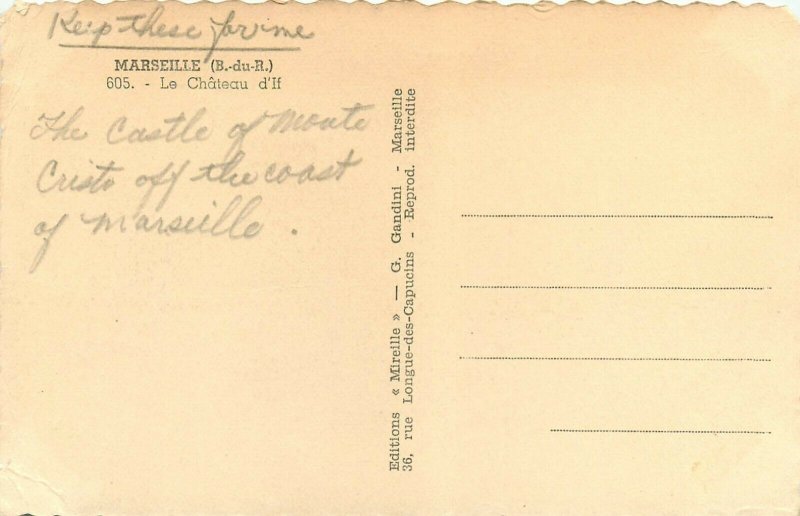 Keep these for me
MARSEILLE (B.-du-R.)
605. - Le Château d'If
The Castle of Monte
Cristo off the coast
of Marseille.
Editions « Mireille » — G. Gandini - Marseille
36, rue Longue-des-Capucins - Reprod. interdite